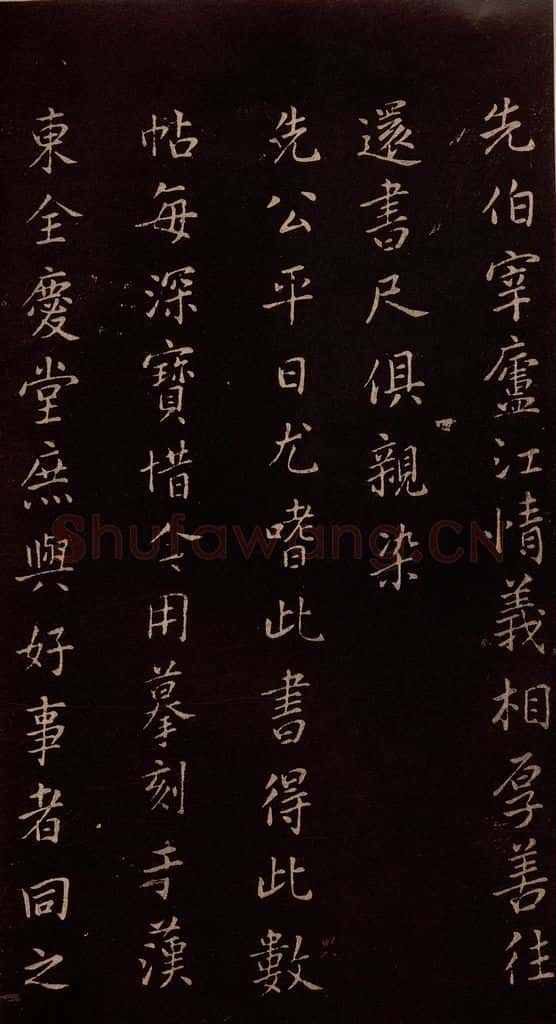 先伯宰廬江情義相厚善往
還書尺俱親染
先公平日尤嗜此書得此數
帖每深寶惜今用摹刻于漢
東全慶堂庶與好事者同之
Shufawang.CN